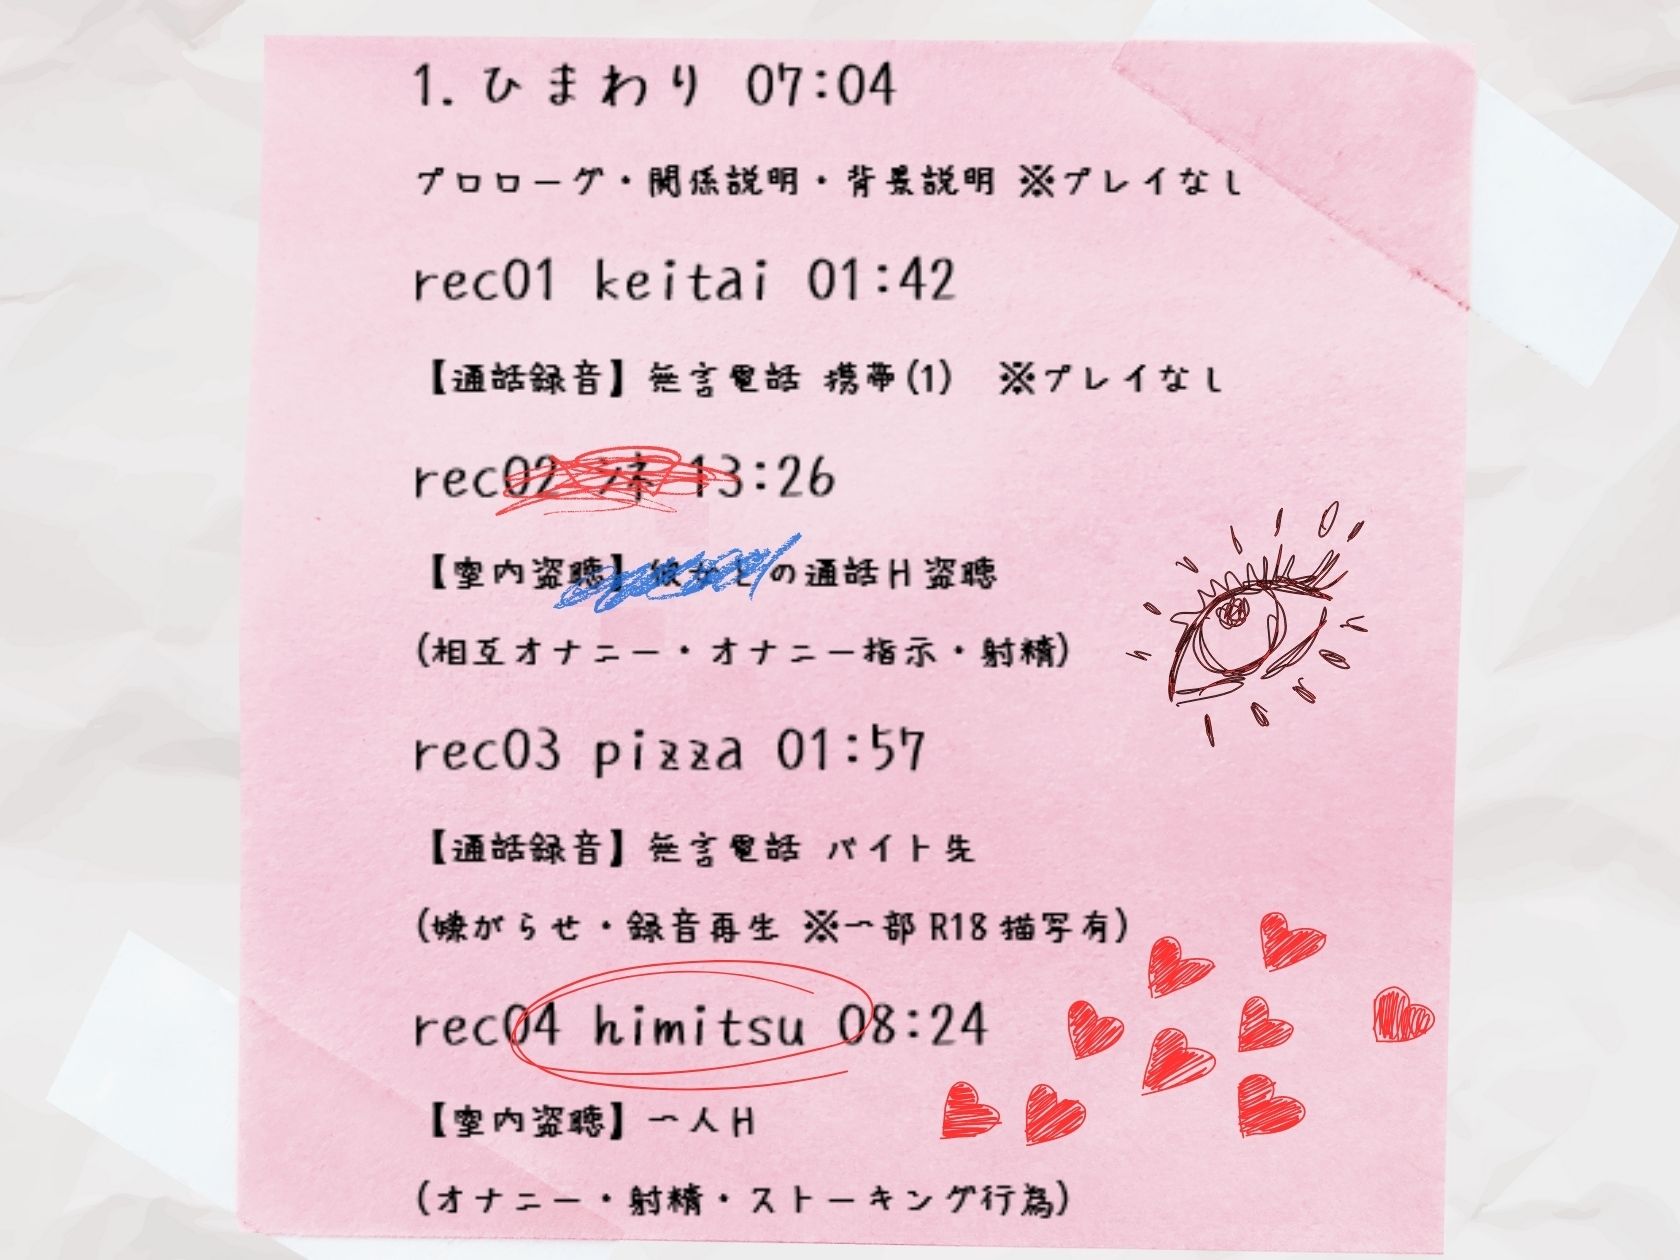 1. ひまわり 07:04
プロローグ・関係説明・背景説明 ※プレイなし
rec01 keitai 01:42
【通話録音】無言電話 携帯(1) ※プレイなし
rec02 13:26
【室内盗聴】の通話H盗聴
(相互オナニー・オナニー指示・射精)
rec03 pizza 01:57
【通話録音】無言電話 バイト先
(嫌がらせ・録音再生 ※一部R18描写有)
rec04 himitsu 08:24
【室内盗聴】一人H
(オナニー・射精・ストーキング行為)